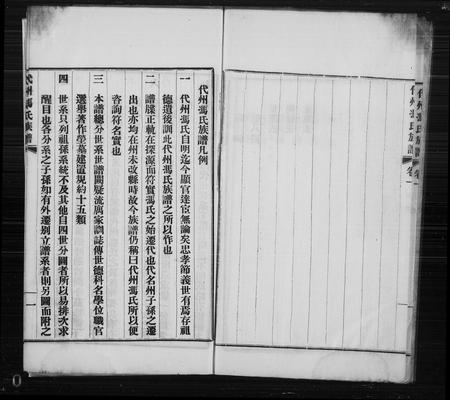 代州馮氏族譜凡例
一 代州馮氏自明迄今顯官達宦無論矣忠孝節義世有爲存祖
德遺後訓此代州馮氏族譜之所以作也
二 譜牒正軌在探源而符實馮氏之始遷代也代名州子孫之遷
出也亦均在州未改縣時故今族譜仍稱曰代州馮氏所以便
咨詢符名實也
三 本譜總分世系世譜闕疑流寓家訓誌傳世德科名學位職官
選舉著作塋墓建置規約十五類
四 世系只列祖孫系統不及其他自四世分圖者所以易排次求
醒目也各分系之子孫如有外遷別立譜系者則另圖而附之
代州馮氏族譜
一
代州馮氏族譜 卷一
代州馮氏族譜 卷一
0